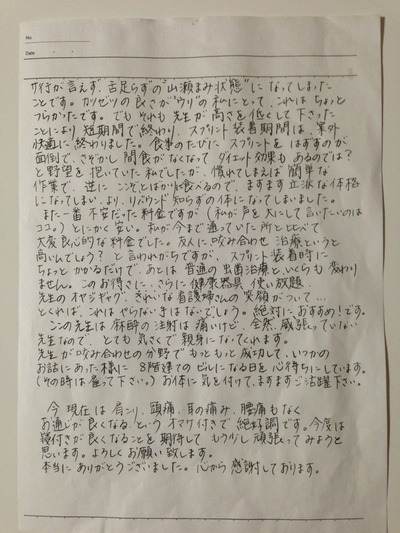 No.
Date
サ行が言えず、舌足らずの"山瀬まみ状態"になってしまった
ことです。カツゼツの良さが"ウリ"の私にとって、これはちょっと
つらかったです。でもそれも先生が高さを低くして下さった
ことにより、短期間で終わり、スプリント装着期間は、案外
快適に終わりました。食事のたびに スプリントをはずすのが
面倒で、さぞかし間食がなくなって ダイエット効果もあるのでは?
と野望を抱いていた私でしたが、慣れてしまえば簡単な
作業で、逆に ここぞとばかり食べるので、ますます立派な体格
になってしまい、より、リバウンド知らずの体になってしまいました。
また一番不安だった料金ですが(私が声を大にして言いたいのは
ココ。)とにかく安い。私が今まで通っていた所と比べて
大変良心的な料金でした。友人に咬み合わせ治療というと
高いんでしょう?と言われがちですが、スプリント装着時に
ちょっとかかるだけで、あとは 普通の虫歯治療といくらも変わり
ません。このお得さに、さらに健康器具使い放題、
先生のオヤジギャグ、きれいな看護婦さんの笑顔がついて…
とくれば、これはやらない手はないでしょう。絶対におすすめ!です。
ここの先生は麻酔の注射は痛いけど、全然威張っていない
先生なので、とても気さくで親身になってくれます。
先生が咬み合わせの分野でもっともっと成功して、いつかの
お話にあった様に 8階建てのビルになる日を心待ちにしています。
(その時は雇って下さい。)お体に気を付けて、ますますご活躍下さい。
今現在は肩こり、頭痛、耳の痛み、腰痛もなく
お通じが良くなるというオマケ付きで絶好調です。今度は
寝付きが良くなることを期待して もう少し頑張ってみようと
思います。よろしくお願い致します。
本当にありがとうございました。心から感謝しております。